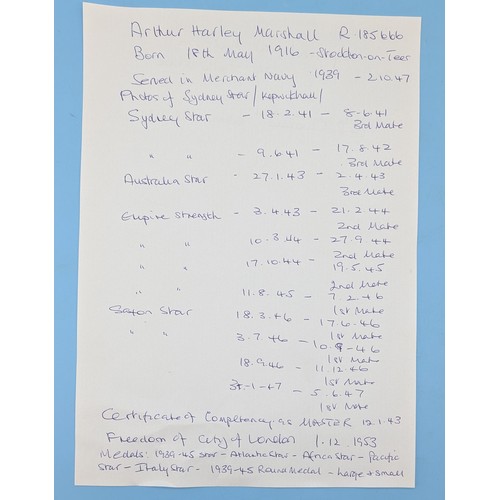 Arthur Harley Marshall R.185666
Born 18th May 1916 - Stockton-on-Tees
Served in Merchant Navy 1939 - 2.10.47
Photos of Sydney Star / /
Sydney Star - 18.2.41 - 8.6.41
3rd Mate
" " - 9.6.41 - 17.8.42
3rd Mate
Australia Star - 27.1.43 - 2.4.43
3rd Mate
Empire Strength - 3.4.43 - 21.2.44
2nd Mate
" " 10.3.44 - 27.9.44
2nd Mate
" " 17.10.44 - 19.5.45
2nd Mate
" " 11.8.45 - 7.2.46
1st Mate
Saxon Star 18.3.46 - 17.6.46
1st Mate
" " 3.7.46 - 10.9.46
1st Mate
18.9.46 - 11.12.46
1st Mate
31-1-47 - 5.6.47
1st Mate
Certificate of Competency as MASTER 12.1.43
Freedom of City of London 1.12.1953
Medals: 1939-45 Star - Atlantic Star - Africa Star - Pacific
Star - Italy Star - 1939-45 Round Medal - Large + small